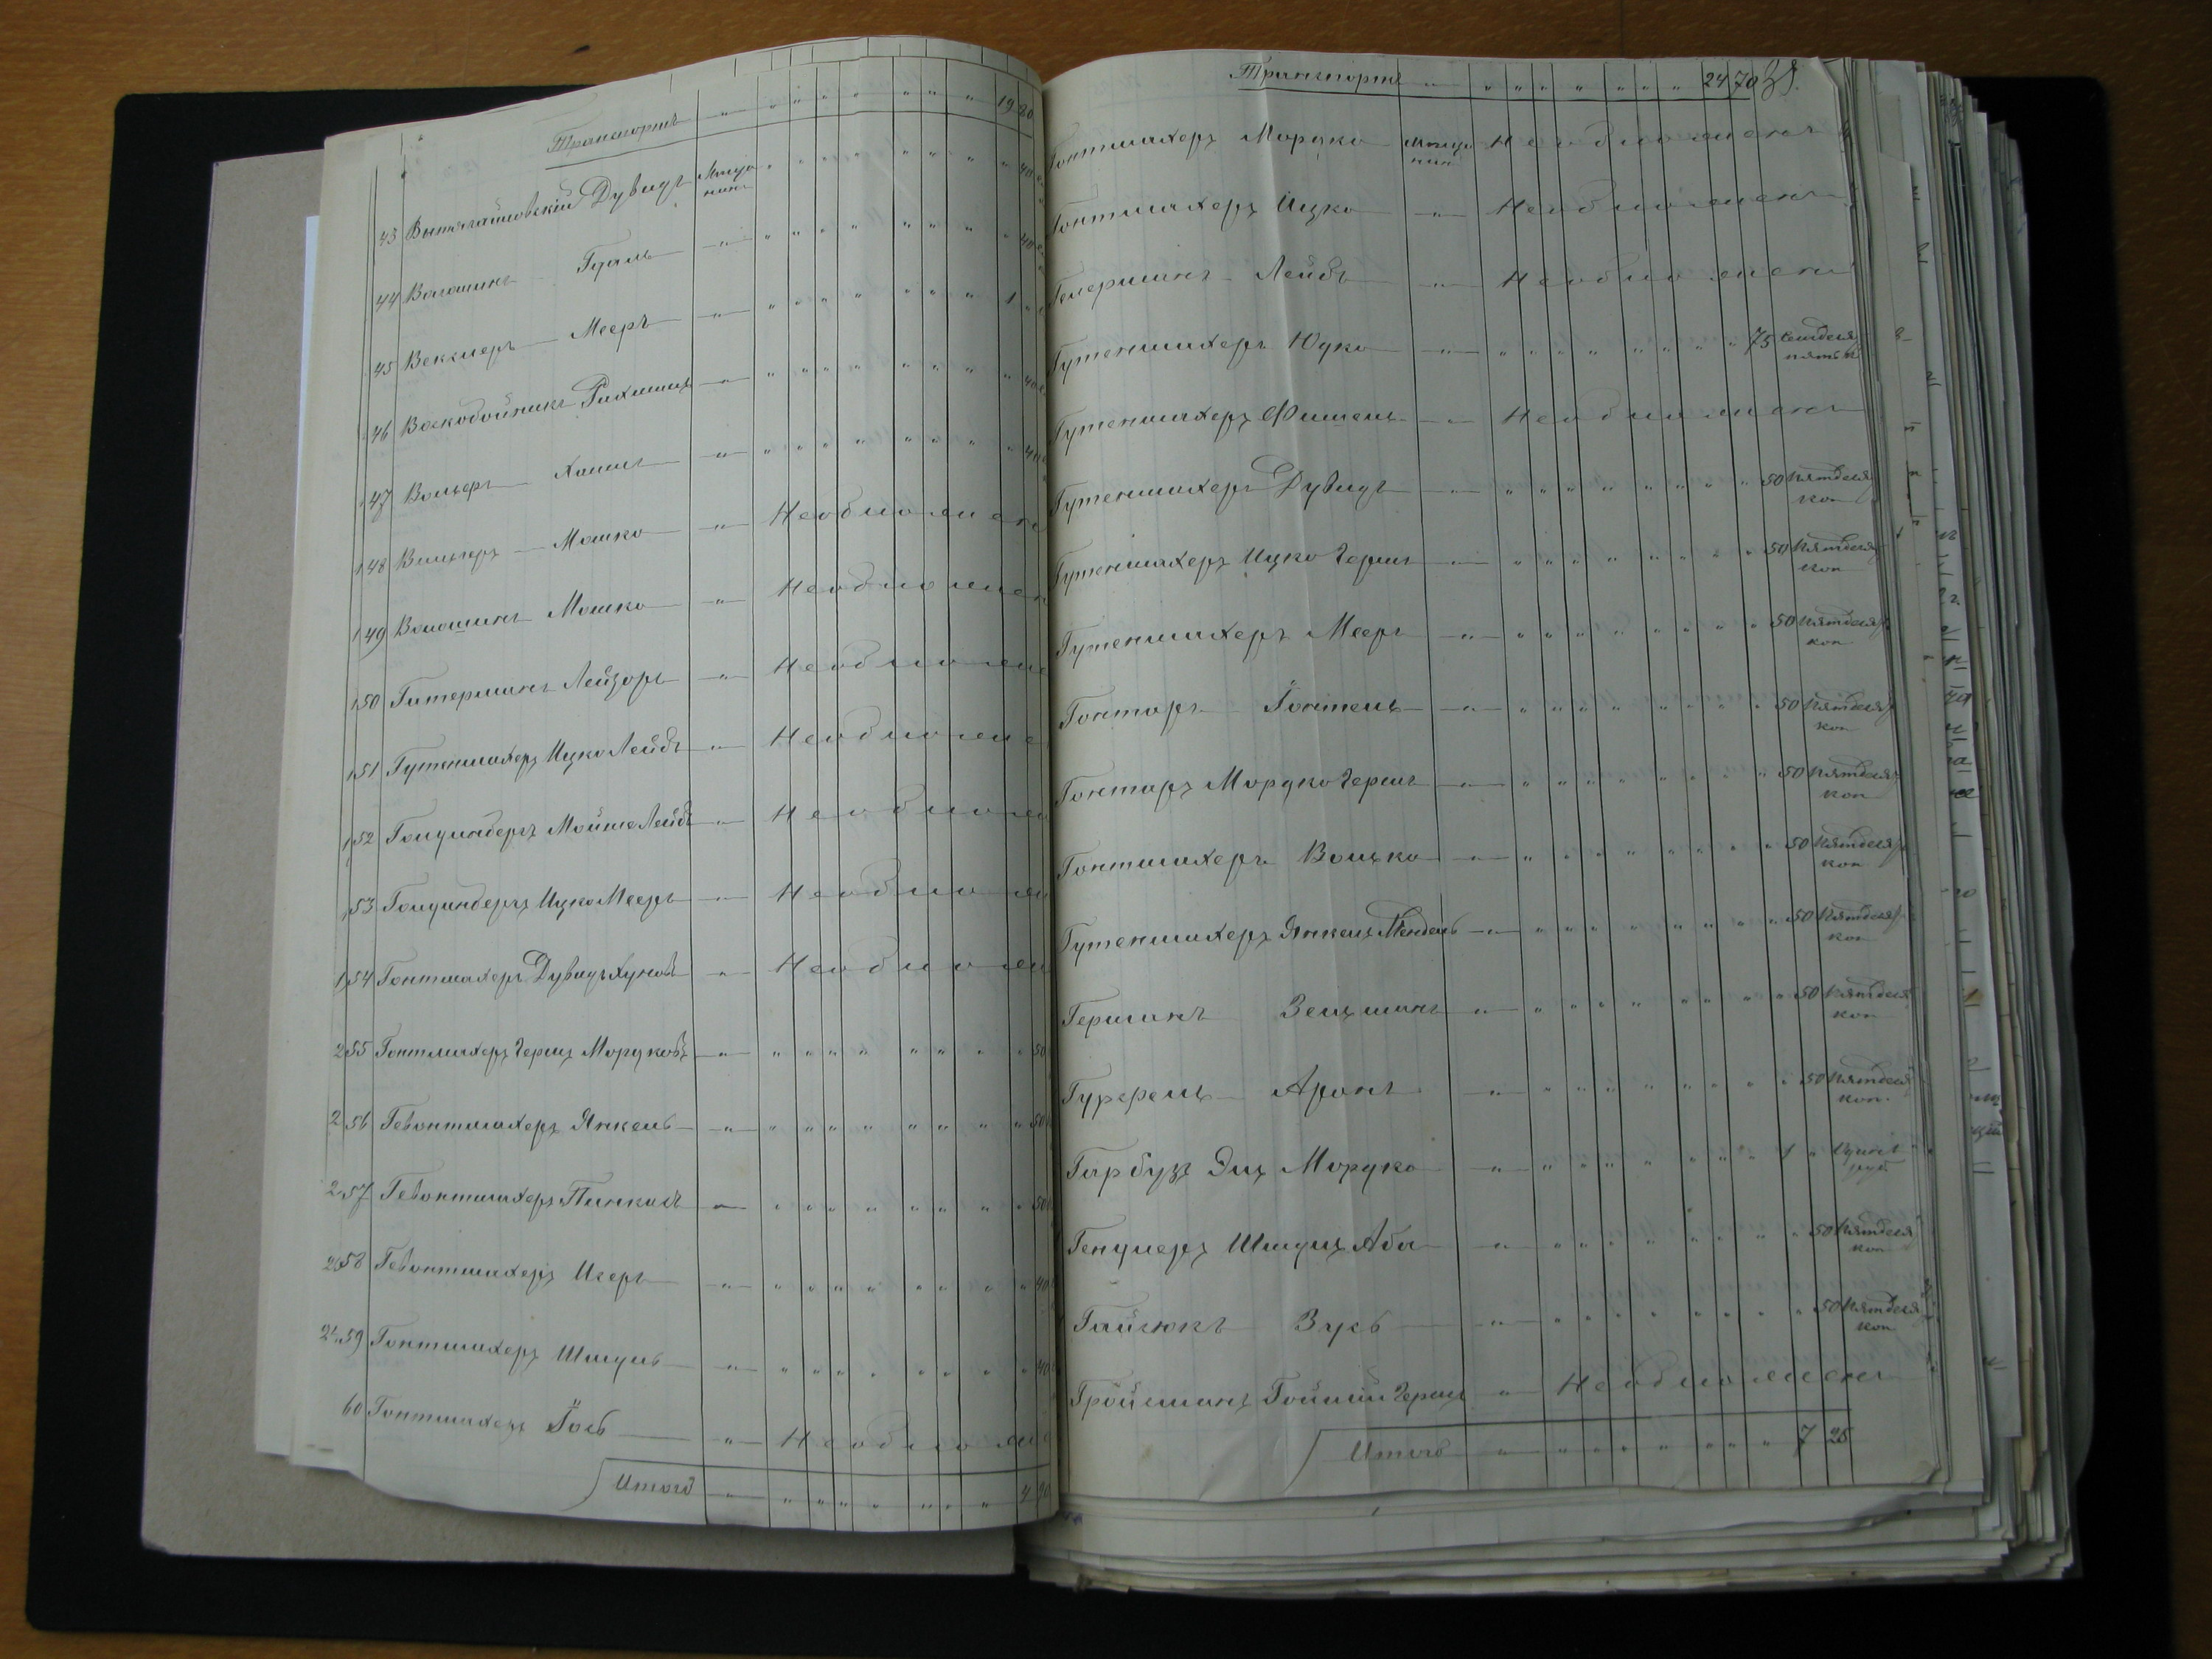 Транспортъ " " " " " " " " 19 80
43 Витагайловскій Дувидъ Мѣща- " " " " " " " " 40
нинъ
44 Волошинъ Гдаль " " " " " " " " " 40
45 Векслеръ Мееръ " " " " " " " " 1 "
46 Воскобойникъ Рахмиль " " " " " " " " " 40
47 Вольеръ Хаимъ " " " " " " " " " 40
48 Мошко " Необложенъ
49 Волошинъ Мошко " Необложен
50 Гитерманъ Лейзоръ " Необложен
51 Гутенмахеръ Ицко Лейбъ " Необложе
52 Голдинбергъ Мойше Лейбъ " Необложе
53 Голдинбергъ Ицко Мееръ " Необлож
54 Гонтмахеръ Дувидъ Хуновъ " Необлож
55 Гонтмахеръ Гершъ Мордковъ " " " " " " " " " 50
56 Гевонтмахеръ Янкель " " " " " " " " " 50
57 Гевонтмахеръ Пинхасъ " " " " " " " " " 50
58 Гевонтмахеръ Исеръ " " " " " " " " " 40
59 Гонтмахеръ Шмуль " " " " " " " " " 40
60 Гонтмахеръ Іось " Необлож
Итого " " " " " " " " 4 90
Транспортъ " " " " " " " " 24 70
Гонтмахеръ Мордко Мѣща- Необложенъ
нинъ
Гонтмахеръ Ицко " Необложенъ
Лейбъ " Необложенъ
Гутенмахеръ Юдко " " " " " " " " " 75 семдеся
пять к
Гутенмахеръ Фишель " Необложенъ
Гутенмахеръ Дувидъ " " " " " " " " " 50 пятдеся
коп
Гутенмахеръ Ицко Гершъ " " " " " " " " " 50 пятдеся
коп
Гутенмахеръ Мееръ " " " " " " " " " 50 пятдеся
коп
Гонтаръ " " " " " " " " " 50 пятдеся
коп
Гонтаръ Мордко Гершъ " " " " " " " " " 50 пятдеся
коп
Гонтмахеръ Волько " " " " " " " " " 50 пятдеся
коп
Гутенмахеръ Янкель Мендель " " " " " " " " " 50 пятдеся
коп
Германъ Зельманъ " " " " " " " " " 50 пятдеся
коп
Гурфель Аронъ " " " " " " " " " 50 пятдеся
коп.
Гарбузъ Эль Мордко " " " " " " " " 1 " одинъ
руб.
Генцлеръ Шмуль Аба " " " " " " " " " 50 пятдеся
коп
Гайсюкъ Зусь " " " " " " " " " 50 пятдеся
коп
Гройсманъ Гершъ " Необложенъ
Итого " " " " " " " " 7 25